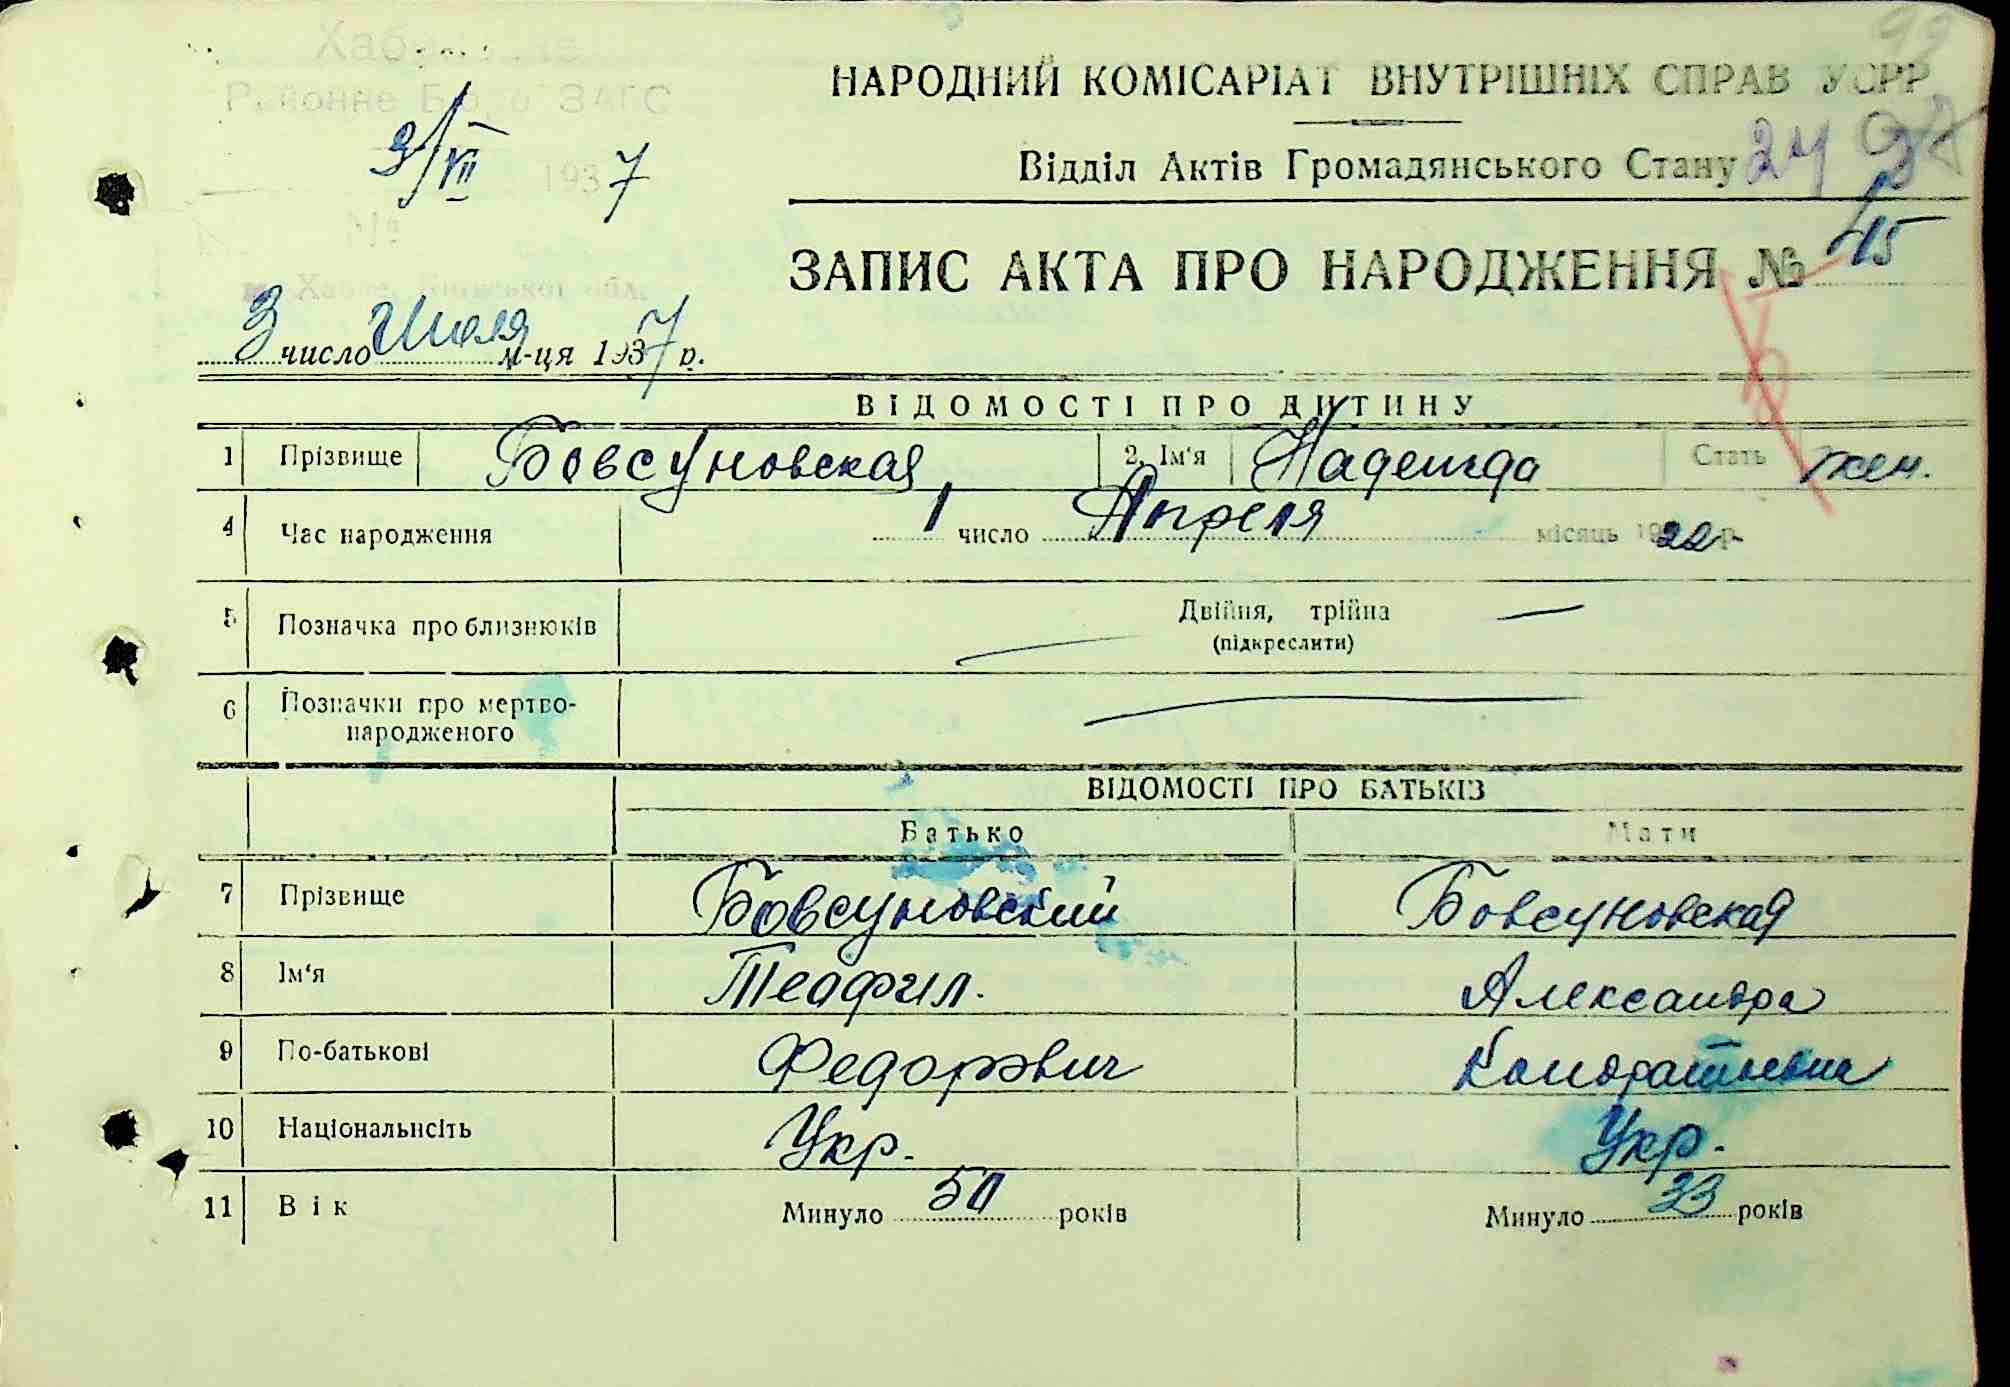 Районне Бюро ЗАГС
3/VII 1937
№
м. Хабне, Київської обл.
НАРОДНИЙ КОМІСАРІАТ ВНУТРІШНІХ СПРАВ УСРР
Відділ Актів Громадянського Стану
ЗАПИС АКТА ПРО НАРОДЖЕННЯ № 45
3 число Июля м-ця 1937 р.
ВІДОМОСТІ ПРО ДИТИНУ
1 Прізвище Бовсуновская 2. Ім'я Надежда Стать жен.
4 Час народження 1 число Апреля місяць 1922 р.
5 Позначка про близнюків Двійня, трійна
(підкреслити)
6 Позначки про мертво-
народженого
ВІДОМОСТІ ПРО БАТЬКІВ
Батько Мати
7 Прізвище Бовсуновский Бовсуновская
8 Ім'я Теафил. Александра
9 По-батькові Федорович Кондратьевна
10 Національнсіть Укр. Укр.
11 Вік Минуло 50 років Минуло 33 років